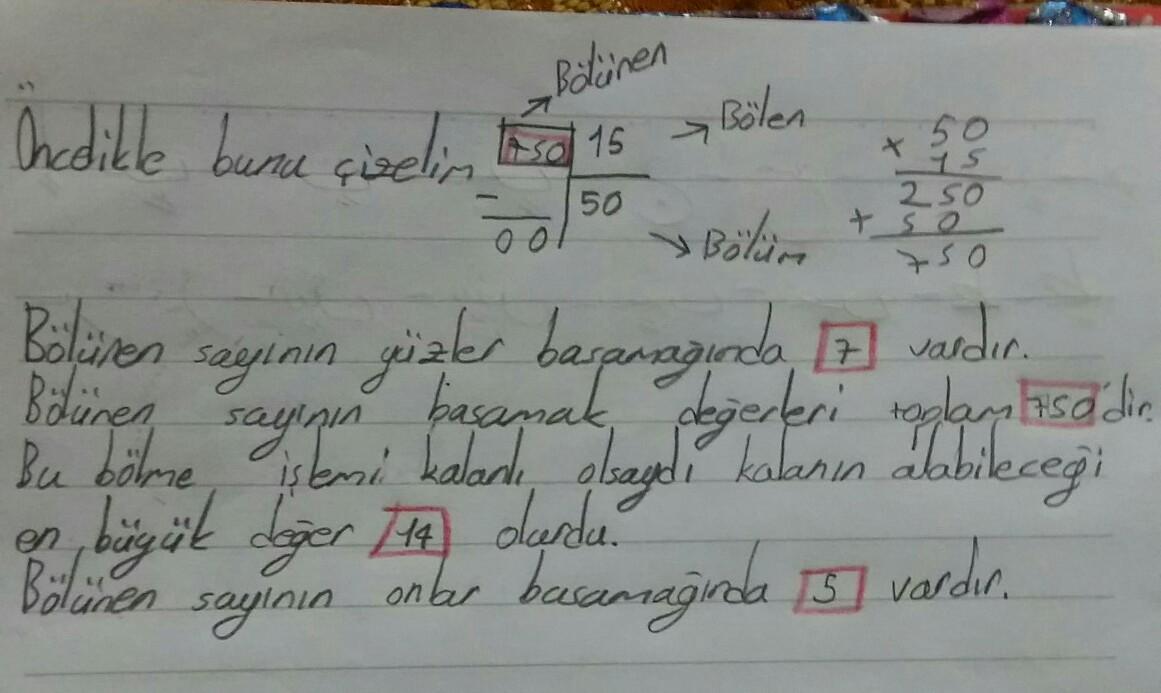 Bölünen
Öncelikle bunu çizelim 750 15 → Bölen
50
x 15
- 50
00
→ Bölüm
250
+ 50
750
Bölünen sayının yüzler basamağında 7 vardır.
Bölünen sayının basamak değerleri toplam 750'dir.
Bu bölme işlemi kalanlı olsaydı kalanın alabileceği
en büyük değer 14 olurdu.
Bölünen sayının onlar basamağında 5 vardır.